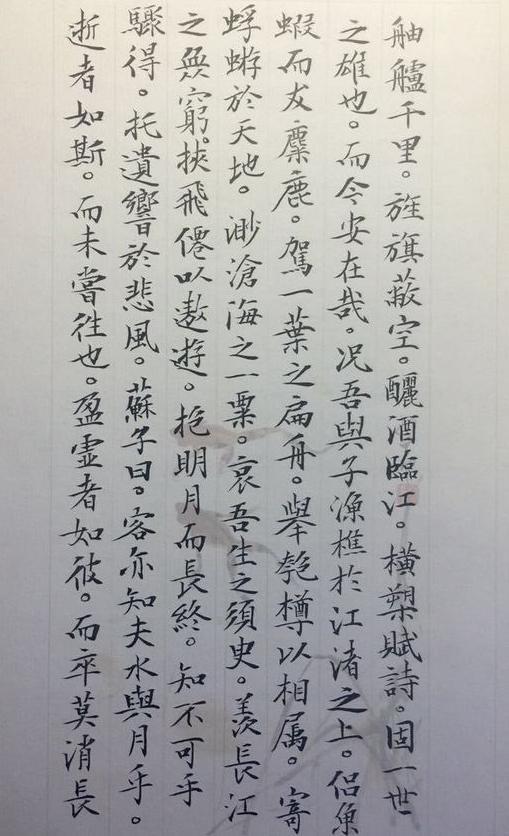 舳艫千里。旌旗蔽空。釃酒臨江。橫槊賦詩。固一世
之雄也。而今安在哉。况吾與子漁樵於江渚之上。侣魚
蝦而友麋鹿。駕一葉之扁舟。舉匏樽以相属。寄
蜉蝣於天地。渺滄海之一粟。哀吾生之須臾。羨長江
之無窮。挾飛僊以遨遊。抱明月而長終。知不可乎
驟得。托遺響於悲風。蘇子曰。客亦知夫水與月乎。
逝者如斯。而未嘗往也。盈虚者如彼。而卒莫消長